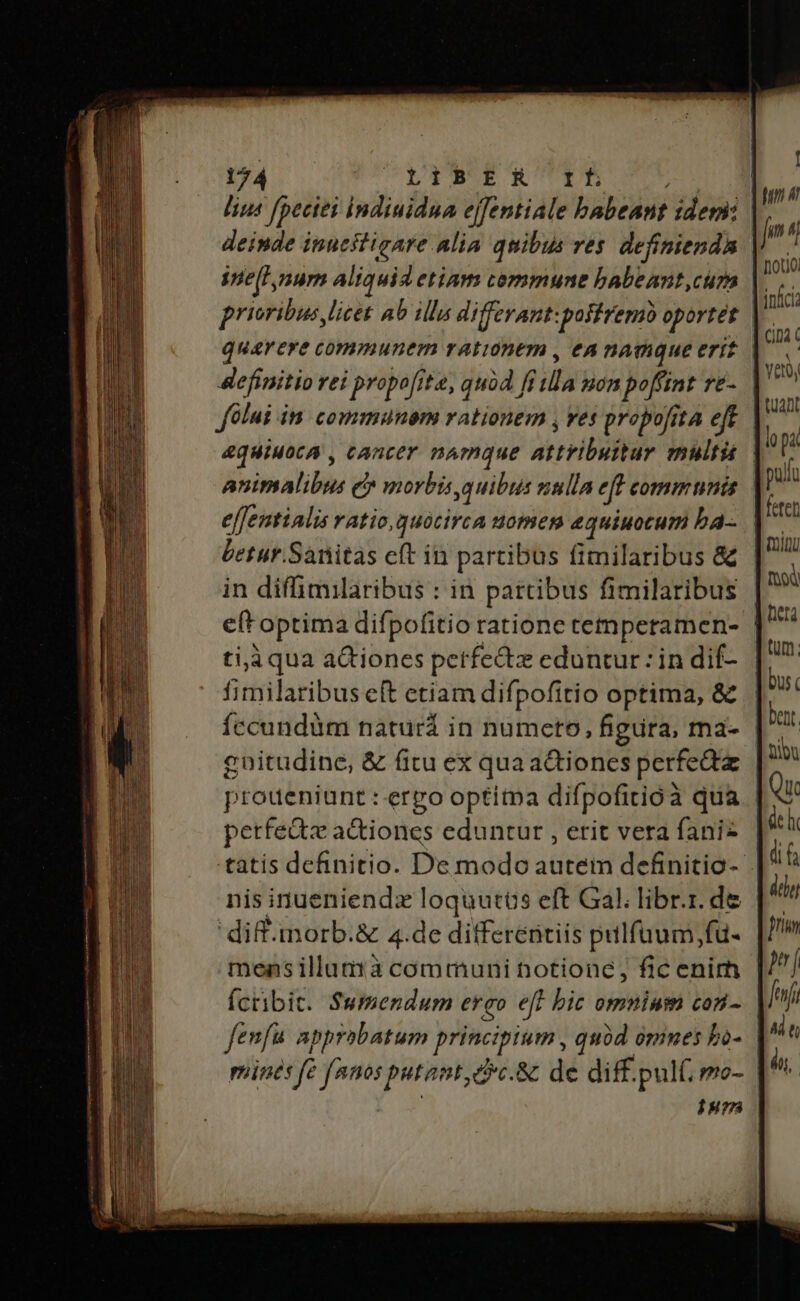 174 LIBER II.
lius ſpeciei indiuidua eſſentiale habeant idem:
deinde inueſtigare alia quibus res definienda
ineſt, num aliquid etiam commune habeant, cum
prioribus, licet ab illis differant: poſtremò oportet
quærere communem rationem, ea namque erit
definitio rei propoſitæ, quòd ſi illa non poſſint re-
ſolui in communem rationem, res propoſita eſt
æquiuoca, cancer namque attribuitur multis
animalibus & morbis, quibus nulla eſt communis
eſſentialis ratio, quocirca nomen æquiuocum ha-
betur. Sanitas eſt in partibus ſimilaribus &
in diſſimilaribus : in partibus ſimilaribus
eſt optima diſpoſitio ratione temperamen-
ti, à qua actiones perfectæ eduntur : in diſ-
ſimilaribus eſt etiam diſpoſitio optima, &
ſecundùm naturā in numero, figura, ma-
gnitudine, & ſitu ex qua actiones perfectæ
proueniunt : ergo optima diſpoſitio à qua
perfectæ actiones eduntur, erit vera ſani-
tatis definitio. De modo autem definitio-
nis inueniendæ loquutus eſt Gal. libr. 1. de
diff. morb. & 4. de differentiis pulſuum, ſu-
mens illum à communi notione, ſic enim
ſcribit. Sumendum ergo eſt hic omnium con-
ſenſu approbatum principium, quòd omnes ho-
mines ſe ſanos putant, &c. & de diff. pulſ. mo-
tum